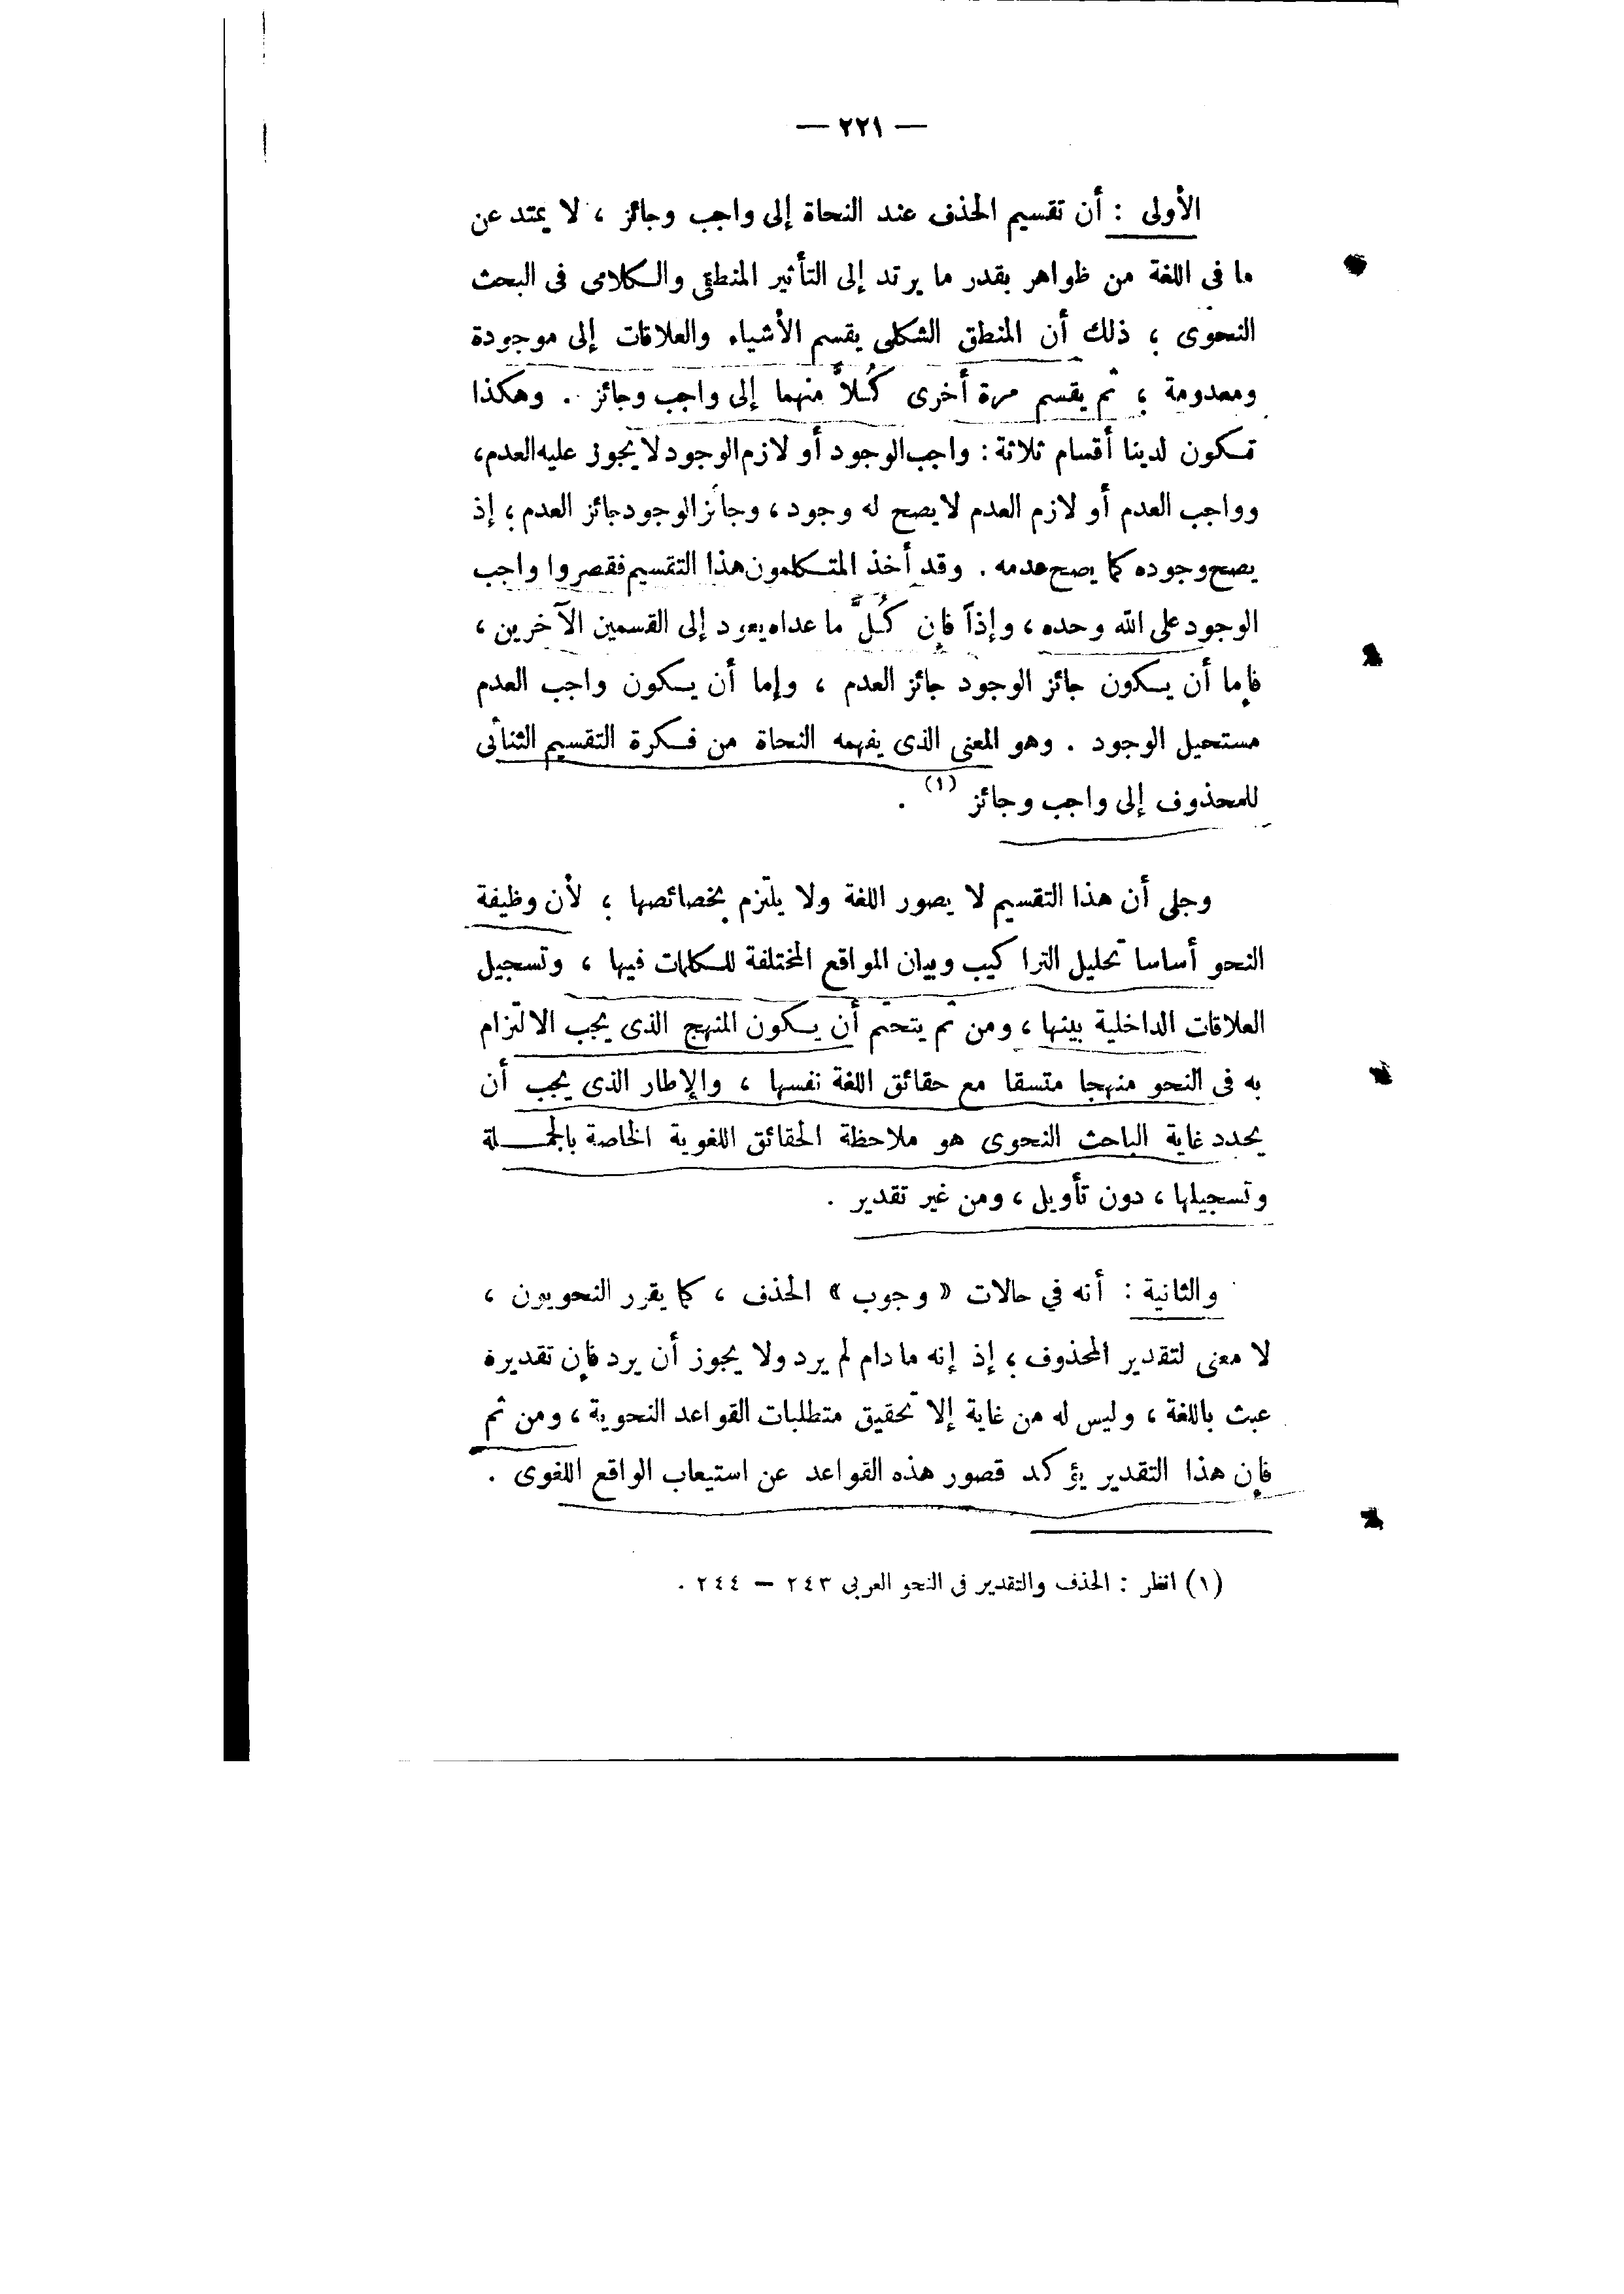 — ٢٢١ —
الأولى : أن تقسيم الحذف عند النحاة إلى واجب وجائز ، لا يمتد عن
ما فى اللغة من ظواهر بقدر ما يرتد إلى التأثير المنطقى والكلامى فى البحث
النحوى ؛ ذلك أن المنطق الشكلى يقسم الأشياء والعلاقات إلى موجودة
ومعدومة ؛ ثم يقسم مرة أخرى كُلاًّ منهما إلى واجب وجائز . وهكذا
تكون لدينا أقسام ثلاثة : واجب الوجود أو لازم الوجود لا يجوز عليه العدم ،
وواجب العدم أو لازم العدم لا يصح له وجود ، وجائز الوجود جائز العدم ؛ إذ
يصح وجوده كما يصح عدمه . وقد أخذ المتكلمون هذا التقسيم فقصروا واجب
الوجود على الله وحده ، وإذاً فإن كُلَّ ما عداه يعود إلى القسمين الآخرين ،
فإما أن يكون جائز الوجود جائز العدم ، وإما أن يكون واجب العدم
مستحيل الوجود . وهو المعنى الذى يفهمه النحاة من فكرة التقسيم الثنائى
للمحذوف إلى واجب وجائز (١) .
وجلى أن هذا التقسيم لا يصور اللغة ولا يلتزم بخصائصها ؛ لأن وظيفة
النحو أساسا تحليل التراكيب وبيان المواقع المختلفة للكلمات فيها ، وتسجيل
العلاقات الداخلية بينها ، ومن ثم يتحتم أن يكون المنهج الذى يجب الالتزام
به فى النحو منهجا متسقا مع حقائق اللغة نفسها ، والإطار الذى يجب أن
يحدد غاية الباحث النحوى هو ملاحظة الحقائق اللغوية الخاصة بالجمـــلة
وتسجيلها ، دون تأويل ، ومن غير تقدير .
والثانية : أنه في حالات « وجوب » الحذف ، كما يقرر النحويون ،
لا معنى لتقدير المحذوف ؛ إذ إنه ما دام لم يرد ولا يجوز أن يرد فإن تقديره
عبث باللغة ، وليس له من غاية إلا تحقيق متطلبات القواعد النحوية ، ومن ثم
فإن هذا التقدير يؤكد قصور هذه القواعد عن استيعاب الواقع اللغوى .
(١) انظر : الحذف والتقدير فى النحو العربى ٢٤٣ — ٢٤٤ .